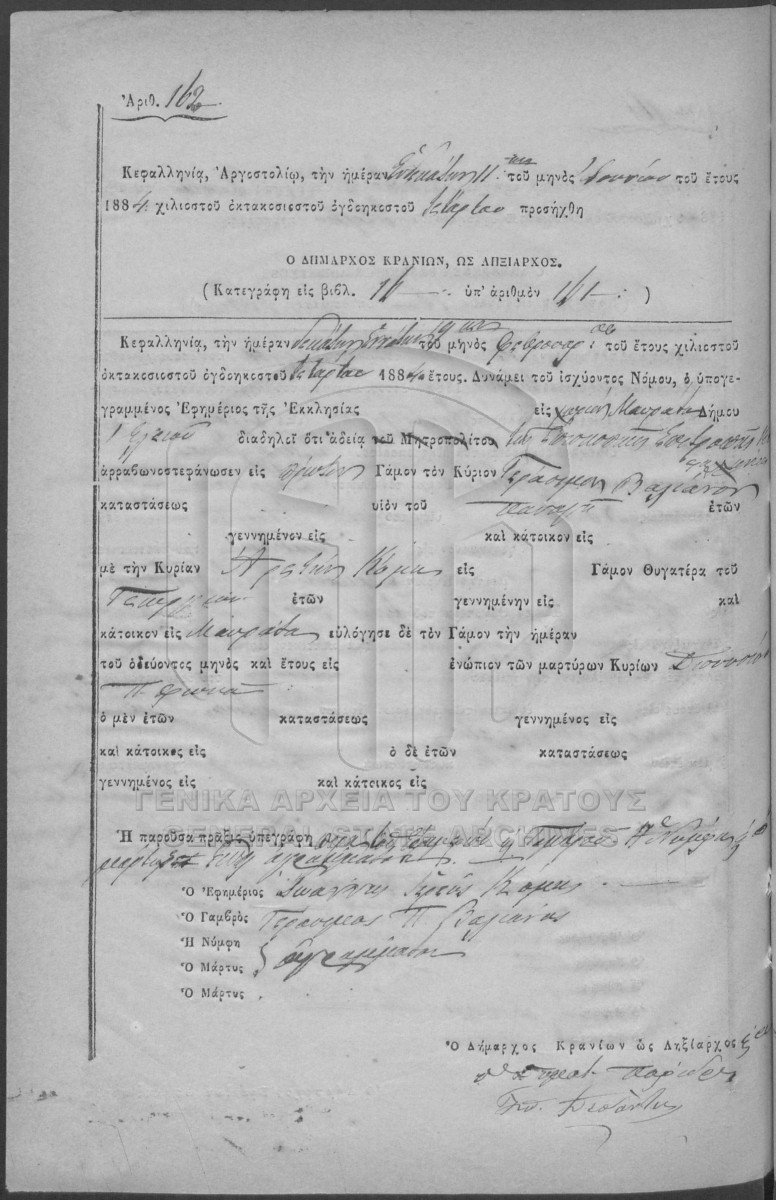 Ἀριθ. 162
Κεφαλληνίᾳ, Ἀργοστολίῳ, τὴν ἡμέραν Ἑνδεκάτην 11 ην τοῦ μηνὸς Ἰουνίου τοῦ ἔτους
1884 χιλιοστοῦ ὀκτακοσιοστοῦ ὀγδοηκοστοῦ τετάρτου προσήχθη
Ο ΔΗΜΑΡΧΟΣ ΚΡΑΝΙΩΝ, ΩΣ ΛΗΞΙΑΡΧΟΣ.
( Κατεγράφη εἰς βιβλ. ὑπ' ἀριθμὸν 161 )
Κεφαλληνίᾳ, τὴν ἡμέραν δεκάτην ἐνάτην 19 ην τοῦ μηνὸς Φεβρουαρίου τοῦ ἔτους χιλιοστοῦ
ὀκτακοσιοστοῦ ὀγδοηκοστοῦ τετάρτου 1884 ἔτους. Δυνάμει τοῦ ἰσχύοντος Νόμου, ὁ ὑπογε-
γραμμένος Ἐφημέριος τῆς Ἐκκλησίας εἰς χωρίον Μαυράτα Δήμου
Ἐλειοῦ διαδηλοῖ ὅτι ἀδείᾳ τοῦ Μητροπολίτου τῆς Ἐπισκοπικῆς Ἐπιτροπῆς
ἀρραβωνοστεφάνωσεν εἰς πρῶτον Γάμον τὸν Κύριον Γεράσιμον Βαλιάνον
καταστάσεως υἱὸν τοῦ Παναγῆ ἐτῶν
γεννημένον εἰς καὶ κάτοικον εἰς
μὲ τὴν Κυρίαν Ἀρετὴν Κομη εἰς Γάμον Θυγατέρα τοῦ
Γεωργίου ἐτῶν γεννημένην εἰς καὶ
κάτοικον εἰς Μαυράτα εὐλόγησε δὲ τὸν Γάμον τὴν ἡμέραν
τοῦ ὁδεύοντος μηνὸς καὶ ἔτους εἰς ἐνώπιον τῶν μαρτύρων Κυρίων Διονυσίου
Π. Φωκᾶ
ὁ μὲν ἐτῶν καταστάσεως γεννημένος εἰς
καὶ κάτοικος εἰς ὁ δὲ ἐτῶν καταστάσεως
γεννημένος εἰς καὶ κάτοικος εἰς
ΓΕΝΙΚΑ ΑΡΧΕΙΑ ΤΟΥ ΚΡΑΤΟΥΣ
GENERAL STATE ARCHIVES
Ἡ παροῦσα πρᾶξις ὑπεγράφη καὶ Ἡ Νύμφη
μάρτυς ἀγράμματοι
Ὁ Ἐφημέριος Ἰωάννης Ἱερεὺς Κομης
Ὁ Γαμβρὸς Γεράσιμος Π. Βαλιάνος
Ἡ Νύμφη
Ὁ Μάρτυς ἀγράμματοι
Ὁ Μάρτυς
Ὁ Δήμαρχος Κρανίων ὡς Ληξίαρχος